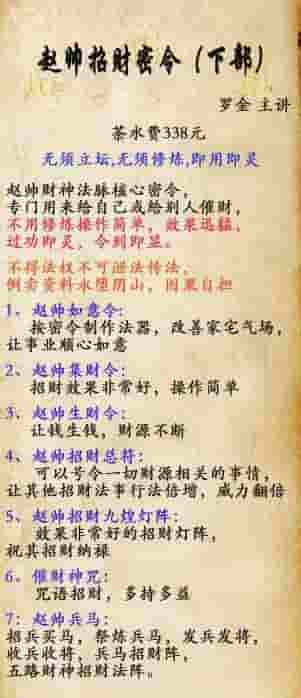 赵帅招财密令（下部）
罗金 主讲
茶水费338元
无须立坛,无须修炼,即用即灵
赵帅财神法脉核心密令，
专门用来给自己或给别人催财，
不用修炼操作简单，效果迅猛，
过功即灵，令到即显。
不得法权不可泄法传法，
倒卖资料永堕阴山，因果自担
1、赵帅如意令：
按密令制作法器，改善家宅气场，
让事业顺心如意
2、赵帅集财令：
招财效果非常好，操作简单
3、赵帅生财令：
让钱生钱，财源不断
4、赵帅招财总符：
可以号令一切财源相关的事情，
让其他招财法事行法倍增，威力翻倍
5、赵帅招财九煌灯阵：
效果非常好的招财灯阵，
祝其招财纳禄
6、催财神咒：
咒语招财，多持多益
7：赵帅兵马：
招兵买马，祭炼兵马，发兵发将，
收兵收将，兵马招财阵，
五路财神招财法阵。